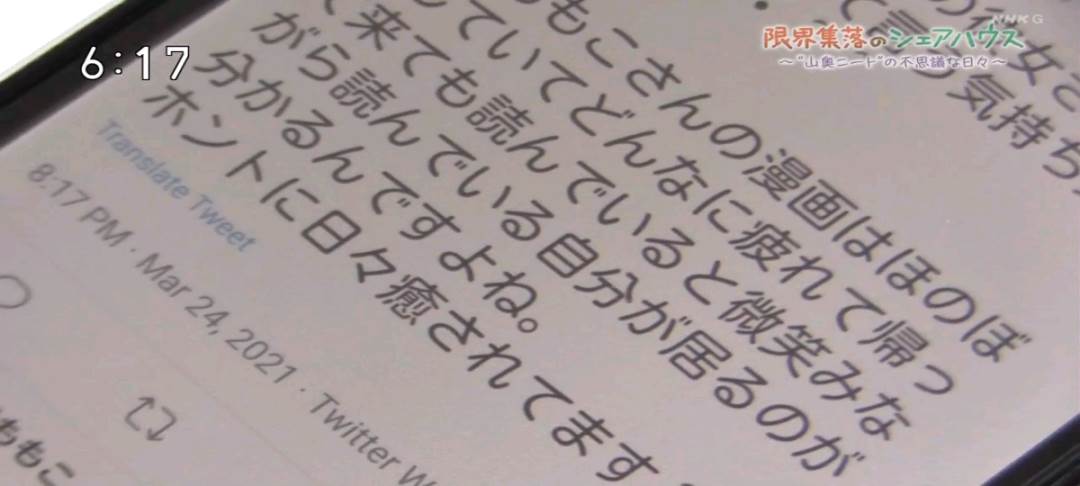 6:17
NHK G
限界集落のシェアハウス
～“山奥ニート”の不思議な日々～
もこさんの漫画はほのぼ
していてどんなに疲れて帰っ
て来ても読んでいると微笑みな
がら読んでいる自分が居るのが
分かるんですよね。
ホントに日々癒されてます
Translate Tweet
8:17 PM · Mar 24, 2021 · Twitter W
ももこ